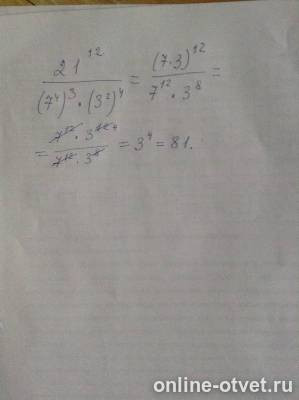 21¹² / (7⁴)³ · (3²)⁴ = (7·3)¹² / 7¹² · 3⁸ =
= 7¹² · 3¹² ⁴ / 7¹² · 3⁸ = 3⁴ = 81.
online-otvet.ru